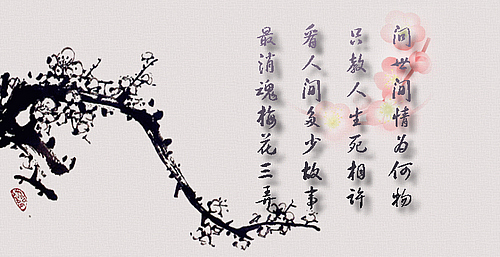 问世间情为何物
只教人生死相许
看人间多少故事
最消魂梅花三弄